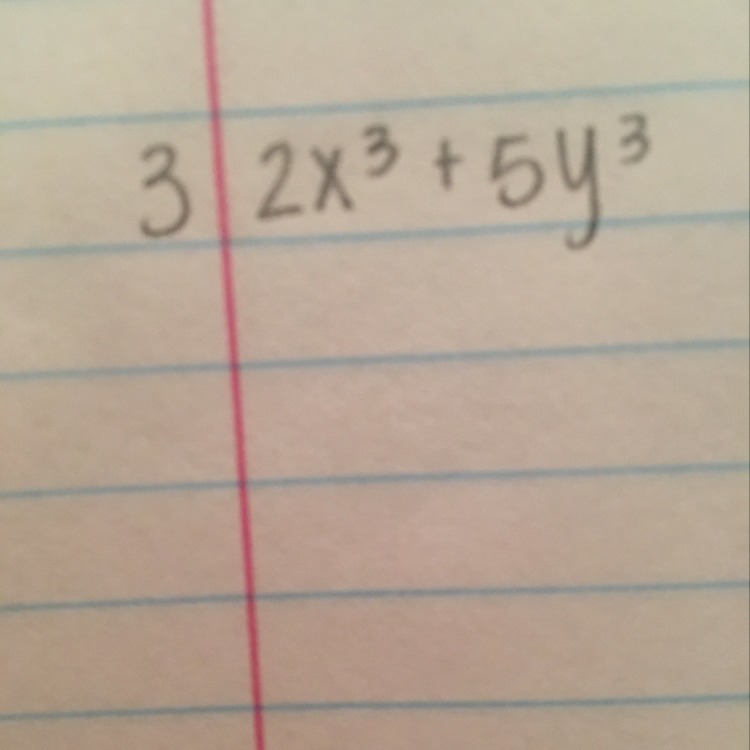 3 2x³ + 5y³